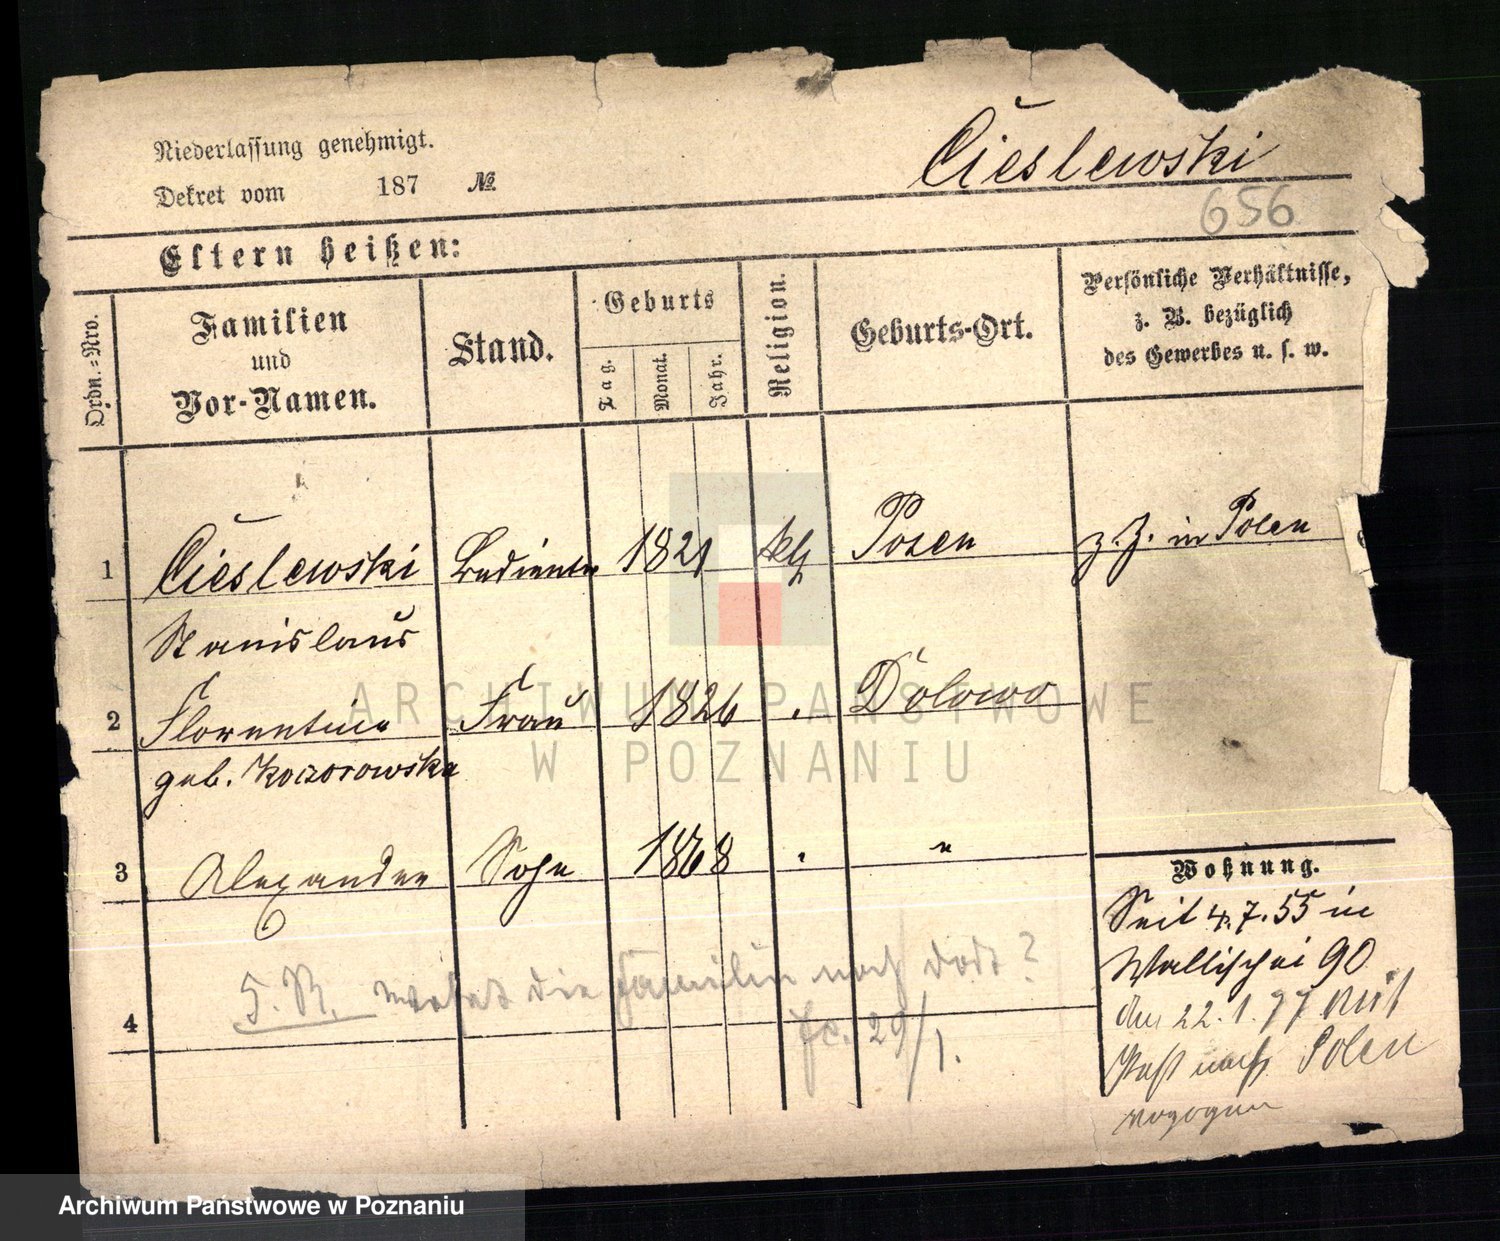 Niederlassung genehmigt.
Dekret vom 187 №
Cieslewski
656
Eltern heißen:
Ordn.-Nro.
Familien
und
Vor-Namen.
Stand.
Geburts
Tag.
Monat.
Jahr.
Religion.
Geburts-Ort.
Persönliche Verhältnisse,
z. B. bezüglich
des Gewerbes u. s. w.
1 Cieslewski Bedienter 1821 kth Posen z. Z. in Polen
Stanislaus
2 Florentine Frau 1826 " Dolowo
geb. Koczorowska
3 Alexander Sohn 1868 " "
Wohnung.
Seit 4.7.55 in
Wallischei 90
den 22.1.77 mit
Paß nach Polen
die Familie noch dort?
4
29/1.
ARCHIWUM PAŃSTWOWE
W POZNANIU
Archiwum Państwowe w Poznaniu